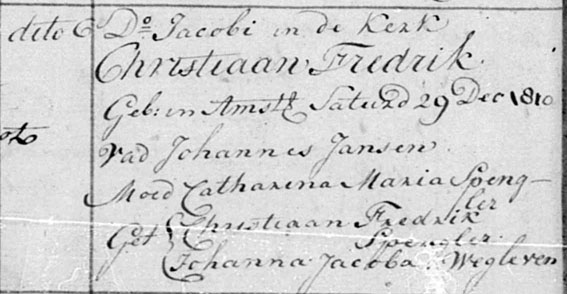 dito 6 Do Jacobi in de Kerk
Christiaan Fredrik.
Geb: in Amst Saturd 29 Dec 1810
Vad Johannes Jansen.
Moed Catharina Maria Speng-
ler
Get { Christiaan Fredrik
Spengler.
Johanna Jacoba Wegleven